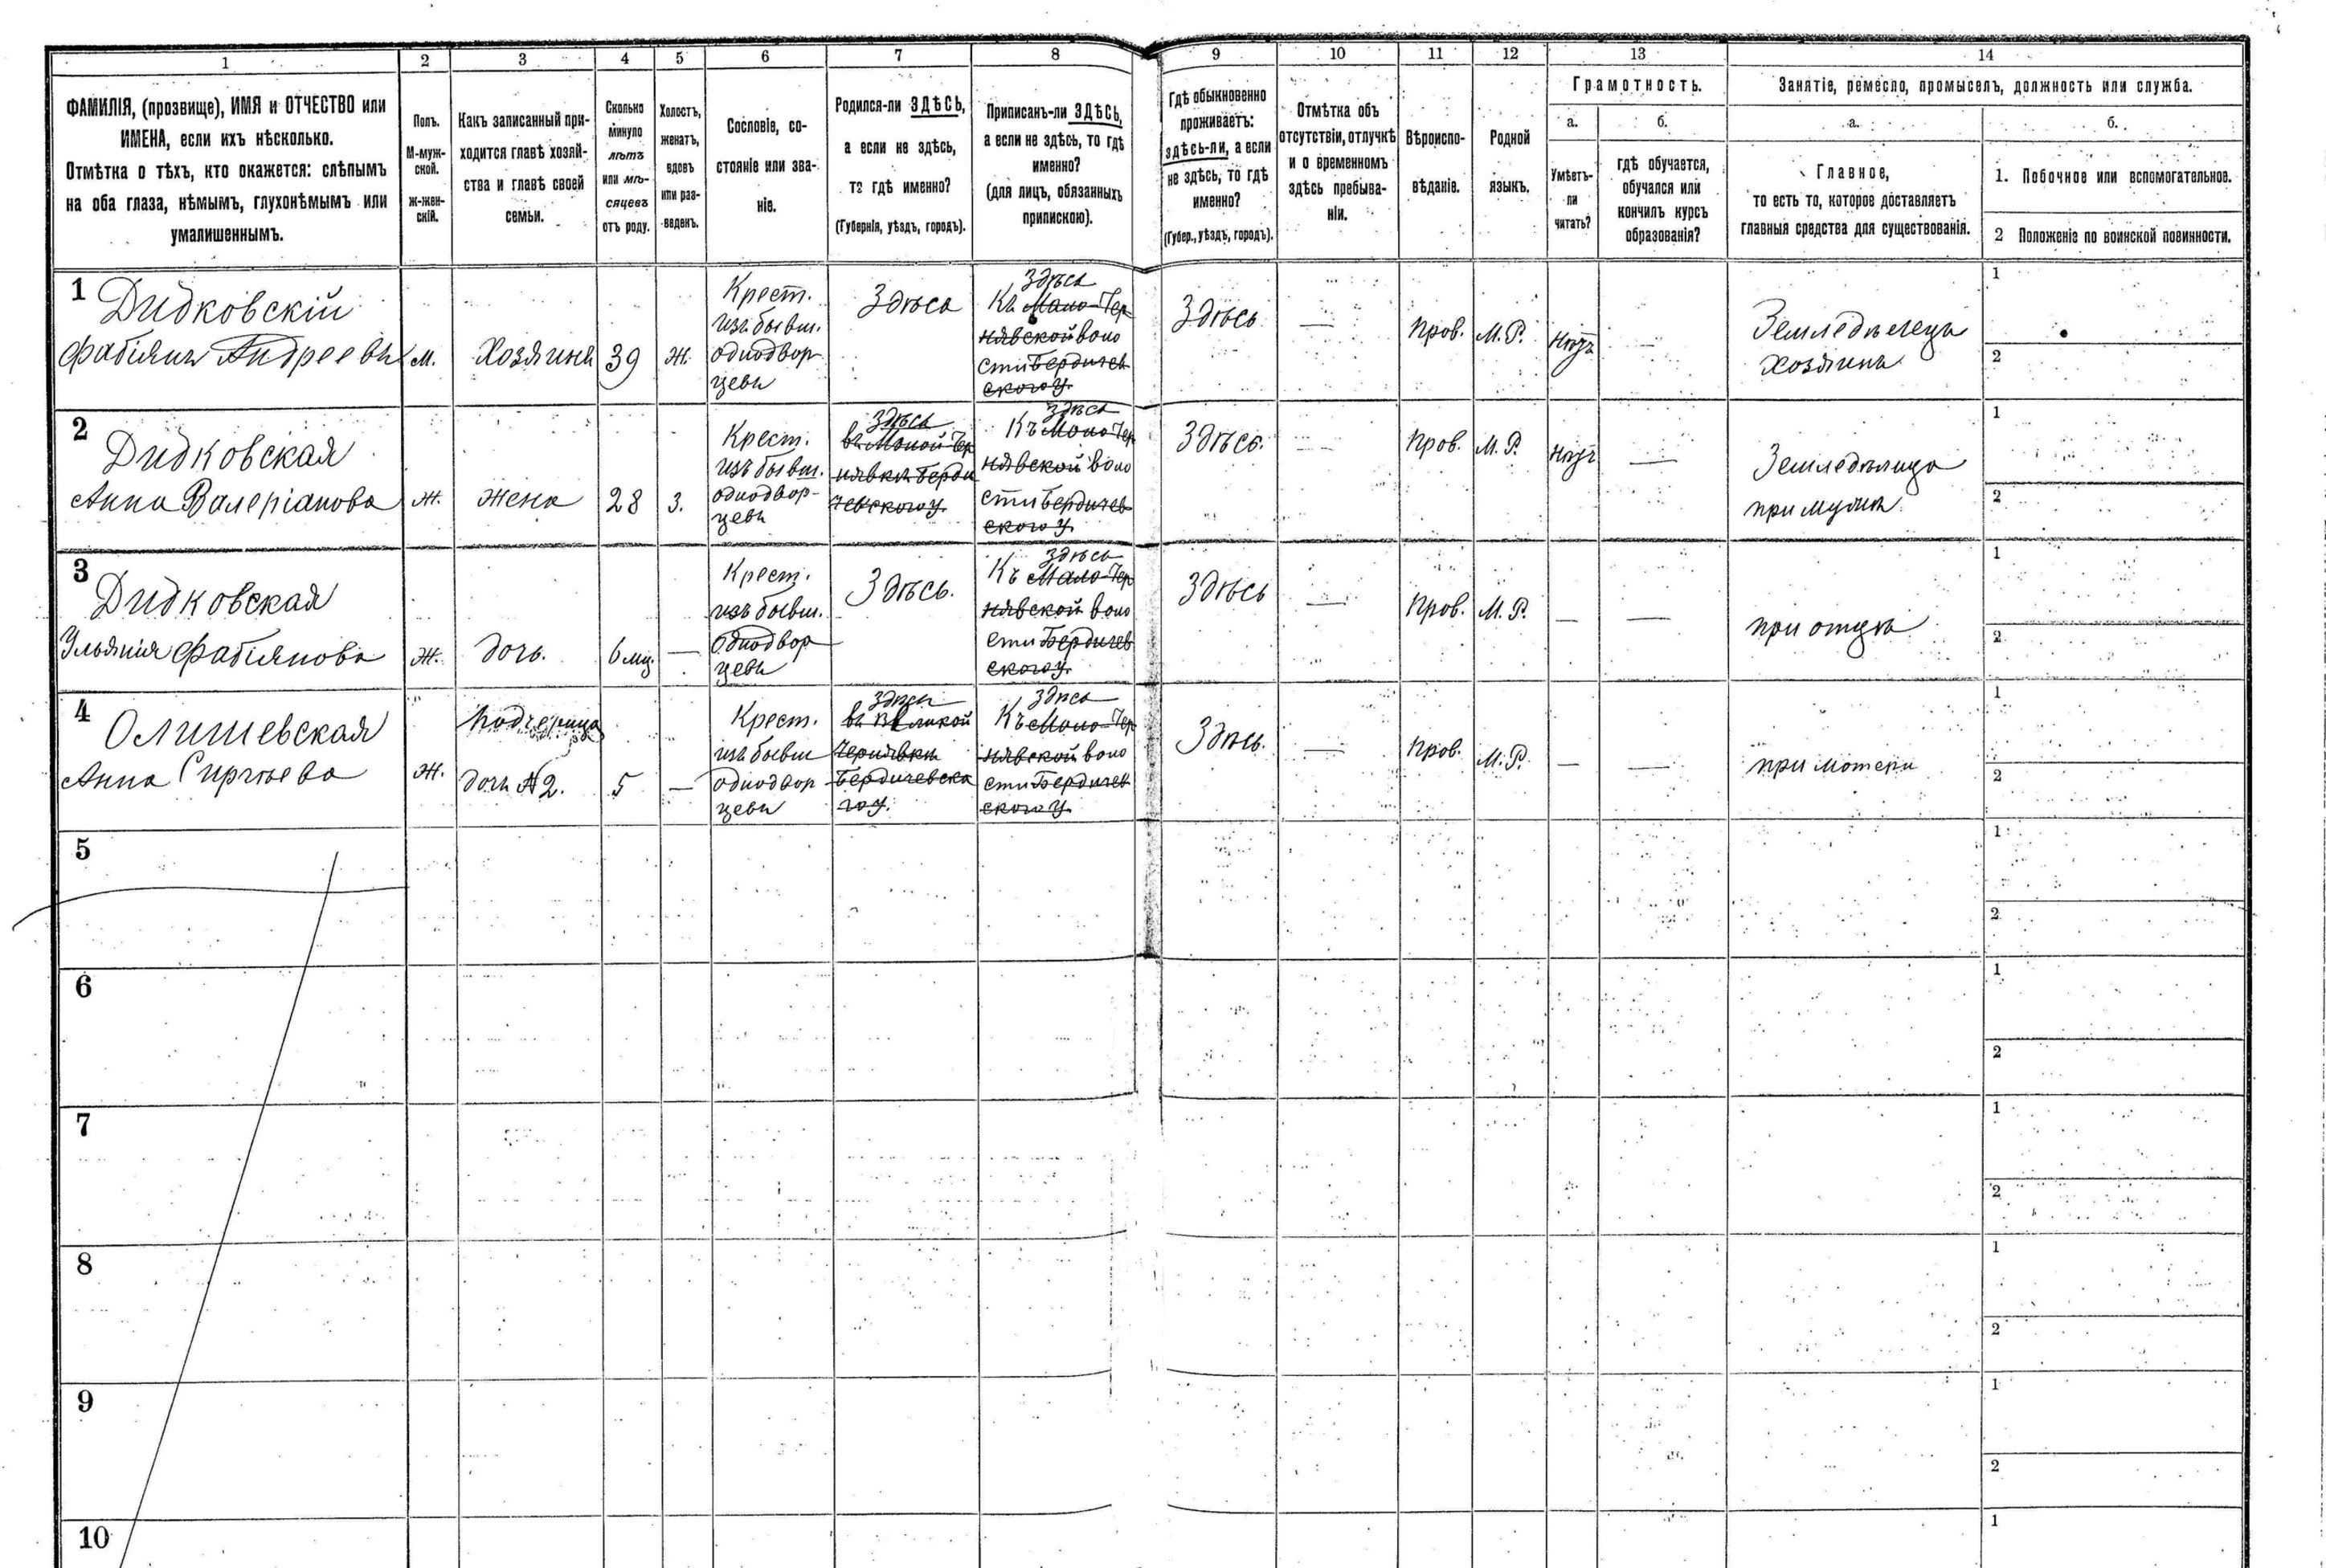 1
2
3
4
5
6
7
8
9
10
11
12
13
14
ФАМИЛІЯ, (прозвище), ИМЯ и ОТЧЕСТВО или
ИМЕНА, если ихъ нѣсколько.
Отмѣтка о тѣхъ, кто окажется: слѣпымъ
на оба глаза, нѣмымъ, глухонѣмымъ или
умалишеннымъ.
Полъ.
М-муж-
ской.
ж-жен-
скій.
Какъ записанный при-
ходится главѣ хозяй-
ства и главѣ своей
семьи.
Сколько
минуло
лѣтъ
или мѣ-
сяцевъ
отъ роду.
Холостъ,
женатъ,
вдовъ
или раз-
веденъ.
Сословіе, со-
стояніе или зва-
ніе.
Родился-ли ЗДѢСЬ,
а если не здѣсь,
то гдѣ именно?
(Губернія, уѣздъ, городъ).
Приписанъ-ли ЗДѢСЬ,
а если не здѣсь, то гдѣ
именно?
(для лицъ, обязанныхъ
припискою).
Гдѣ обыкновенно
проживаетъ:
здѣсь-ли, а если
не здѣсь, то гдѣ
именно?
(Губер., уѣздъ, городъ).
Отмѣтка объ
отсутствіи, отлучкѣ
и о временномъ
здѣсь пребыва-
ніи.
Вѣроиспо-
вѣданіе.
Родной
языкъ.
Грамотность.
а.
Умѣетъ-
ли
читать?
б.
гдѣ обучается,
обучался или
кончилъ курсъ
образованія?
Занятіе, ремесло, промыселъ, должность или служба.
а.
Главное,
то есть то, которое доставляетъ
главныя средства для существованія.
б.
1. Побочное или вспомогательное.
2 Положеніе по воинской повинности.
1
Дидковскій
Фабіянъ Андреевъ
м.
Хозяинъ
39
ж.
Крест.
изъ бывш.
однодвор
цевъ
Здѣсь
Здѣсь
Къ Мало-Чер
нявской воло
сти Бердичев
ского у.
Здѣсь
—
Пров.
М. Р.
нѣтъ
—
Земледѣлецъ
хозяинъ
1
2
2
Дидковская
Анна Валеріанова
ж.
жена
28
з.
Крест.
изъ бывш.
однодвор-
цевъ
здѣсь
въ Малой Чер
нявкѣ Берди
чевского у.
здѣсь
Къ Мало Чер
нявской воло
сти Бердичев
ского у.
Здѣсь.
—
Пров.
М. Р.
нѣтъ
—
Земледѣлица
при мужѣ
1
2
3
Дидковская
Ульянія Фабіянова
ж.
дочь.
6 мц.
—
Крест.
изъ бывш.
однодвор
цевъ
Здѣсь.
здѣсь
Къ Мало-Чер
нявской воло
сти Бердичев
ского у.
Здѣсь
—
Пров.
М. Р.
—
—
при отцѣ
1
2
4
Олишевская
Анна Сиргѣева
ж.
Падчерица
дочь №2.
5
—
Крест.
изъ бывш
однодвор
цевъ
здѣсь
въ Великой
Чернявки
Бердичевска
го у.
здѣсь
Къ Мало-Чер
нявской воло
сти Бердичев
ского у.
Здѣсь.
—
Пров.
М. Р.
—
—
при матери
1
2
5
1
2
6
1
2
7
1
2
8
1
2
9
1
2
10
1